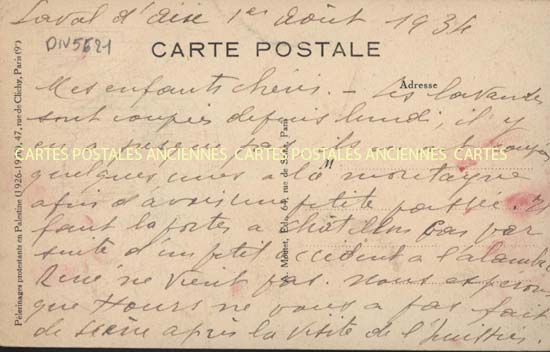 Laval d'Aix 1er Août 1934
DIV5621
CARTE POSTALE
Adresse
Mes enfants chéris. - Les lavandes
sont coupées depuis lundi, il y
en a
CARTES POSTALES ANCIENNES CARTES POSTALES ANCIENNES CARTES POSTALES ANCIENNES
quelques unes à la montagne
afin d'avoir une petite
faut la porter à Châtillon pas par
suite d'un petit accident à l'alambic
René ne vient pas. Nous espérons
que Hours ne vous a pas fait
de scène après la visite de l'huissier.
Pèlerinages protestants en Palestine 47, rue de Clichy, Paris (9e)
64, rue de Paris